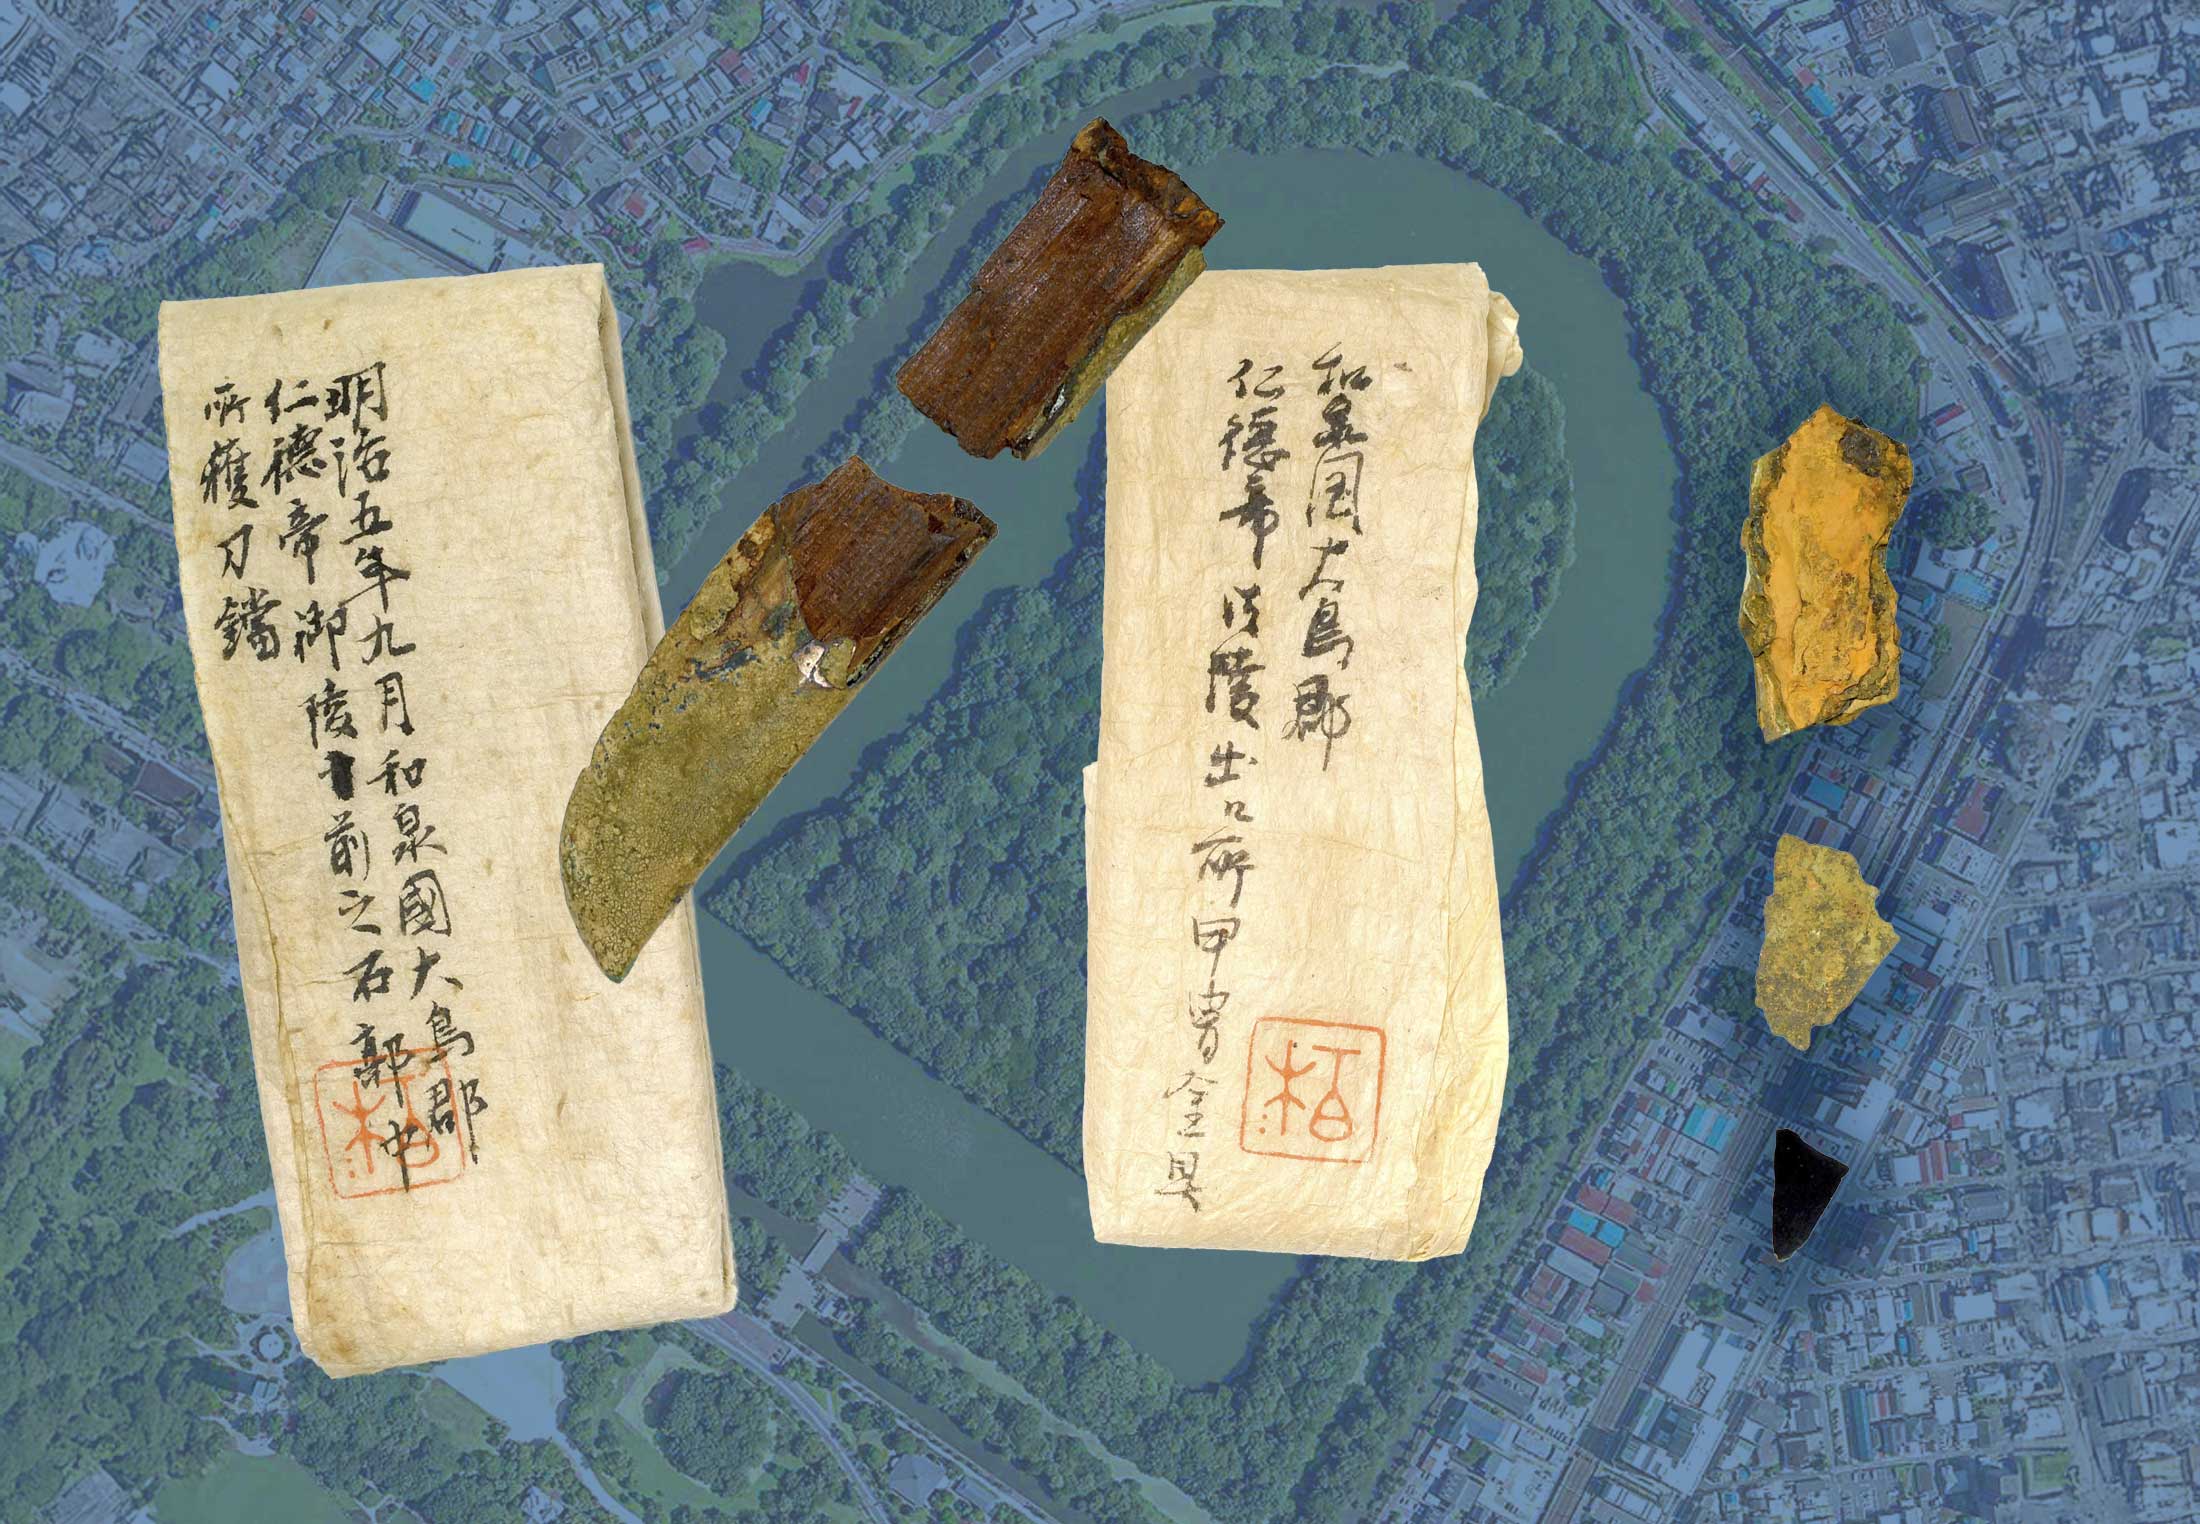 明治五年九月和泉國大鳥郡
仁徳帝御陵前之石郭中
所獲刀鐺
栢
和泉国大鳥郡
仁徳帝御陵出ル所甲冑金具
栢